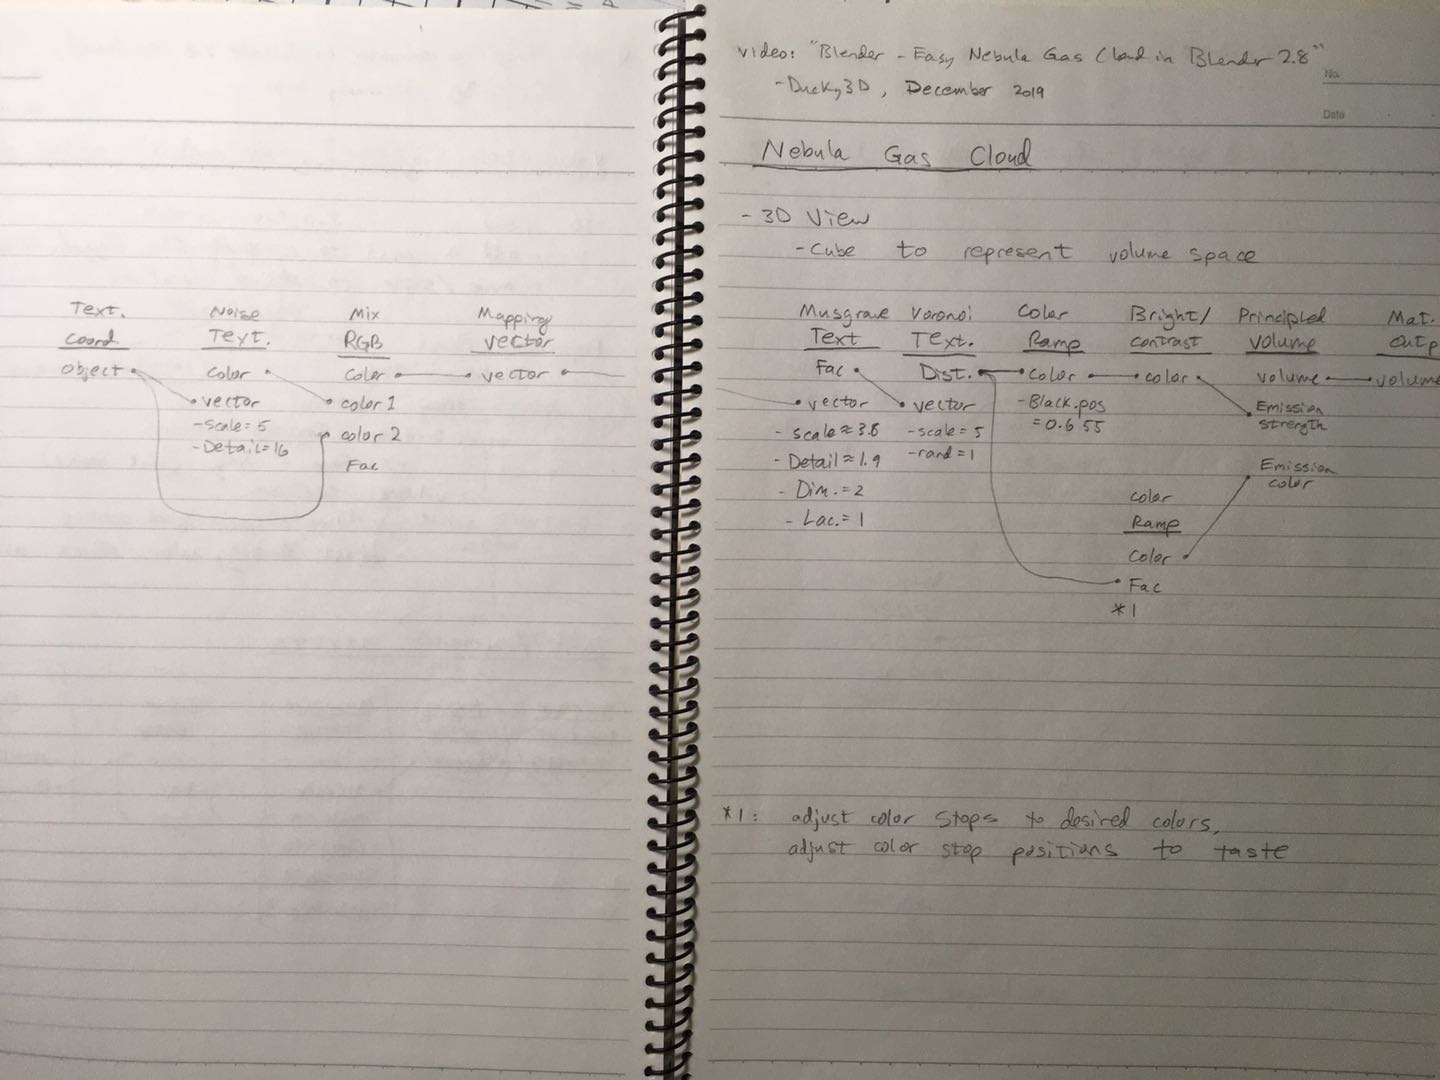 video: "Blender - Easy Nebula Gas Cloud in Blender 2.8"
No.
- Ducky3D, December 2019
Date
Nebula Gas Cloud
- 3D View
- Cube to represent volume space
Text. Noise Mix Mapping
coord. Text. RGB vector
object color color vector
vector color 1
- scale = 5 color 2
- Detail = 16
Fac
Musgrave Voronoi Color Bright/ Principled Mat.
Text Text. Ramp contrast volume outp
Fac Dist. color color volume volume
vector vector - Black.pos Emission
- scale ≈ 3.8 - scale = 5 = 0.655 strength
- Detail ≈ 1.9 - rand = 1
Emission
- Dim. = 2 color color
- Lac. = 1 Ramp
color
Fac
*1
*1: adjust color stops to desired colors,
adjust color stop positions to taste